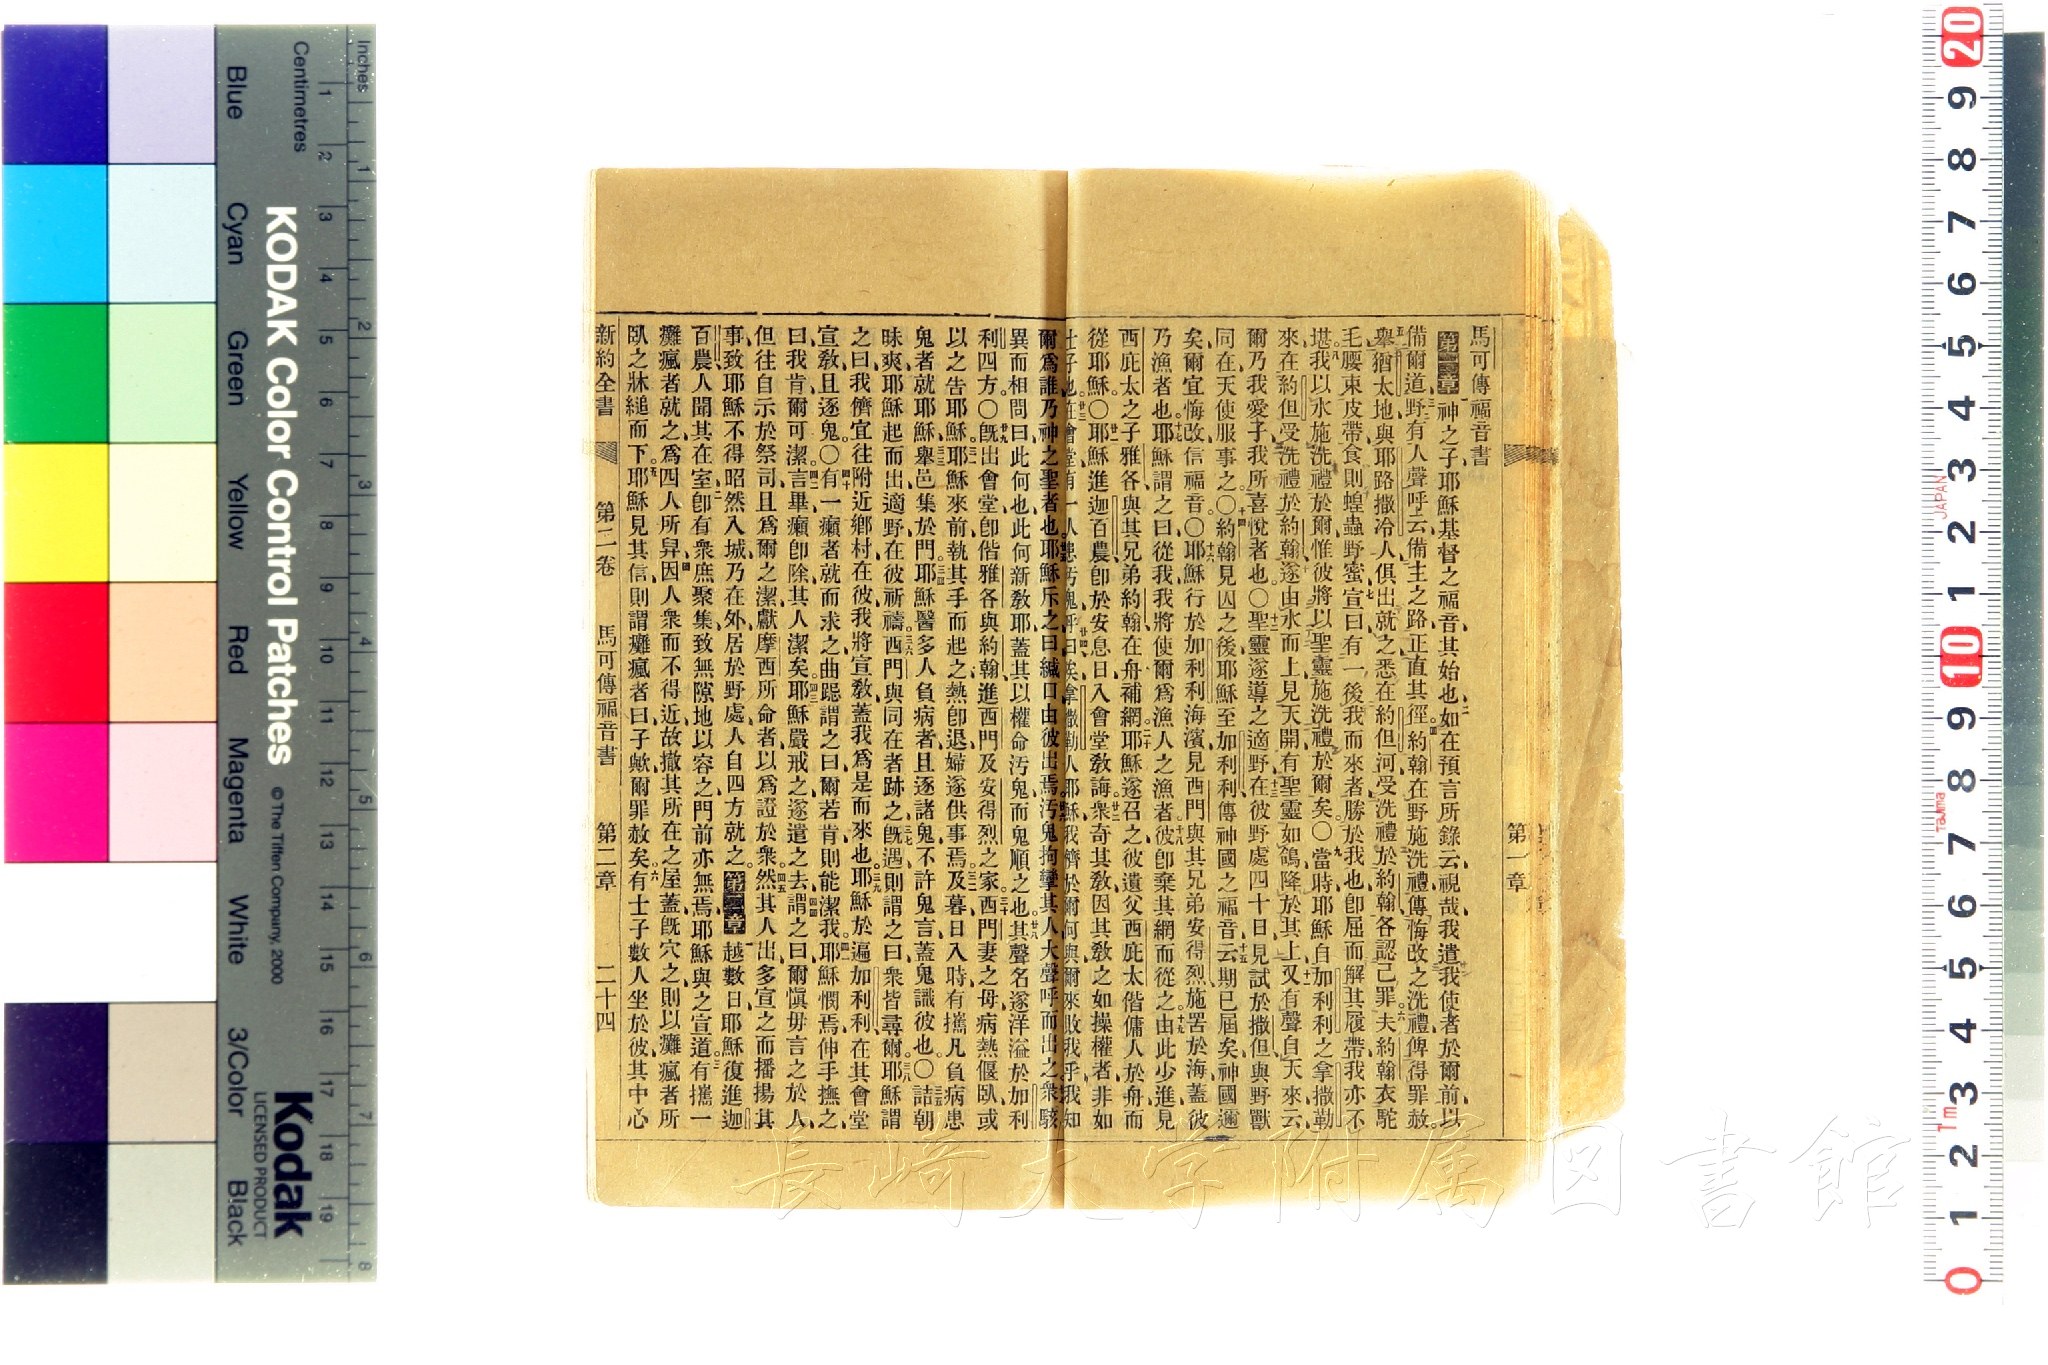 馬可傳福音書
第一章神之子耶穌基督之福音其始也如在預言所錄云視哉我遣我使者於爾前以
備爾道野有人聲呼云備主之路正直其徑約翰在野施洗禮傳悔改之洗禮俾得罪赦
舉猶太地與耶路撒冷人俱出就之悉在約但河受洗禮於約翰各認己罪夫約翰衣駝
毛腰束皮帶食則蝗蟲野蜜宣曰有一後我而來者勝於我也卽屈而解其履帶我亦不
堪我以水施洗禮於爾惟彼將以聖靈施洗禮於爾矣〇當時耶穌自加利利之拿撒勒
來在約但受洗禮於約翰遂由水而上見天開有聖靈如鴿降於其上又有聲自天來云
爾乃我愛子我所喜悅者也〇聖靈遂導之適野在彼野處四十日見試於撒但與野獸
同在天使服事之〇約翰見囚之後耶穌至加利利傳神國之福音云期已屆矣神國邇
矣爾宜悔改信福音〇耶穌行於加利利海濱見西門與其兄弟安得烈施罟於海蓋彼
乃漁者也耶穌謂之曰從我我將使爾爲漁人之漁者彼卽棄其網而從之由此少進見
西庇太之子雅各與其兄弟約翰在舟補網耶穌遂召之彼遺父西庇太偕傭人於舟而
從耶穌〇耶穌進迦百農卽於安息日入會堂敎誨衆奇其敎因其敎之如操權者非如
士子也在會堂有一人患汚鬼呼曰唉拿撒勒人耶穌我儕於爾何與爾來敗我乎我知
爾爲誰乃神之聖者也耶穌斥之曰緘口由彼出焉汚鬼拘攣其人大聲呼而出之衆駭
異而相問曰此何也此何新敎耶蓋其以權命汚鬼而鬼順之也其聲名遂洋溢於加利
利四方〇旣出會堂卽偕雅各與約翰進西門及安得烈之家西門妻之母病熱偃臥或
以之告耶穌耶穌來前執其手而起之熱卽退婦遂供事焉及暮日入時有攜凡負病患
鬼者就耶穌舉邑集於門耶穌醫多人負病者且逐諸鬼不許鬼言蓋鬼識彼也〇詰朝
昧爽耶穌起而出適野在彼祈禱西門與同在者跡之旣遇則謂之曰衆皆尋爾耶穌謂
之曰我儕宜往附近鄉村在彼我將宣敎蓋我爲是而來也耶穌於遍加利利在其會堂
宣敎且逐鬼〇有一癩者就而求之曲跽謂之曰爾若肯則能潔我耶穌憫焉伸手撫之
曰我肯爾可潔言畢癩卽除其人潔矣耶穌嚴戒之遂遣之去謂之曰爾愼毋言之於人
但往自示於祭司且爲爾之潔獻摩西所命者以爲證於衆然其人出多宣之而播揚其
事致耶穌不得昭然入城乃在外居於野處人自四方就之第二章越數日耶穌復進迦
百農人聞其在室卽有衆庶聚集致無隙地以容之門前亦無焉耶穌與之宣道有攜一
癱瘋者就之爲四人所舁因人衆而不得近故撤其所在之屋蓋旣穴之則以癱瘋者所
臥之牀縋而下耶穌見其信則謂癱瘋者曰子歟爾罪赦矣有士子數人坐於彼其中心
新約全書 第二卷 馬可傳福音書 第二章 二十四
第一章
長崎大学附属図書館
KODAK Color Control Patches © The Tiffen Company, 2000
Kodak
LICENSED PRODUCT
Inches
Centimetres
Blue
Cyan
Green
Yellow
Red
Magenta
White
3/Color
Black
JAPAN
Tajima